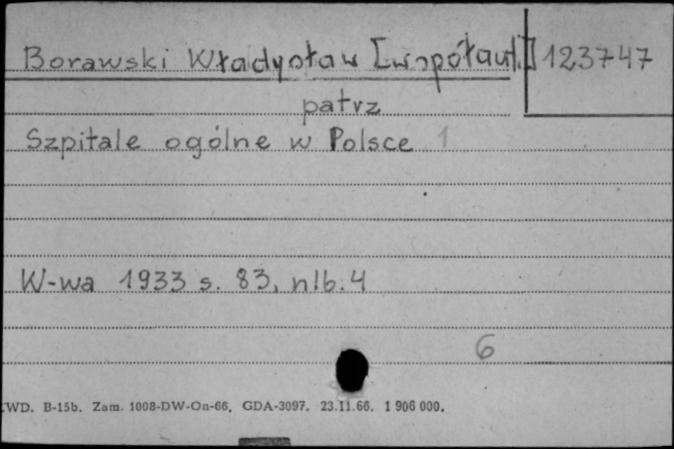 Borawski Władysław [współaut.] 123747
patrz
Szpitale ogólne w Polsce 1
W-wa 1933 s. 83, nlb. 4
6
WD. B-15b. Zam. 1008-DW-On-66. GDA-3097. 23.11.66. 1 906 000.